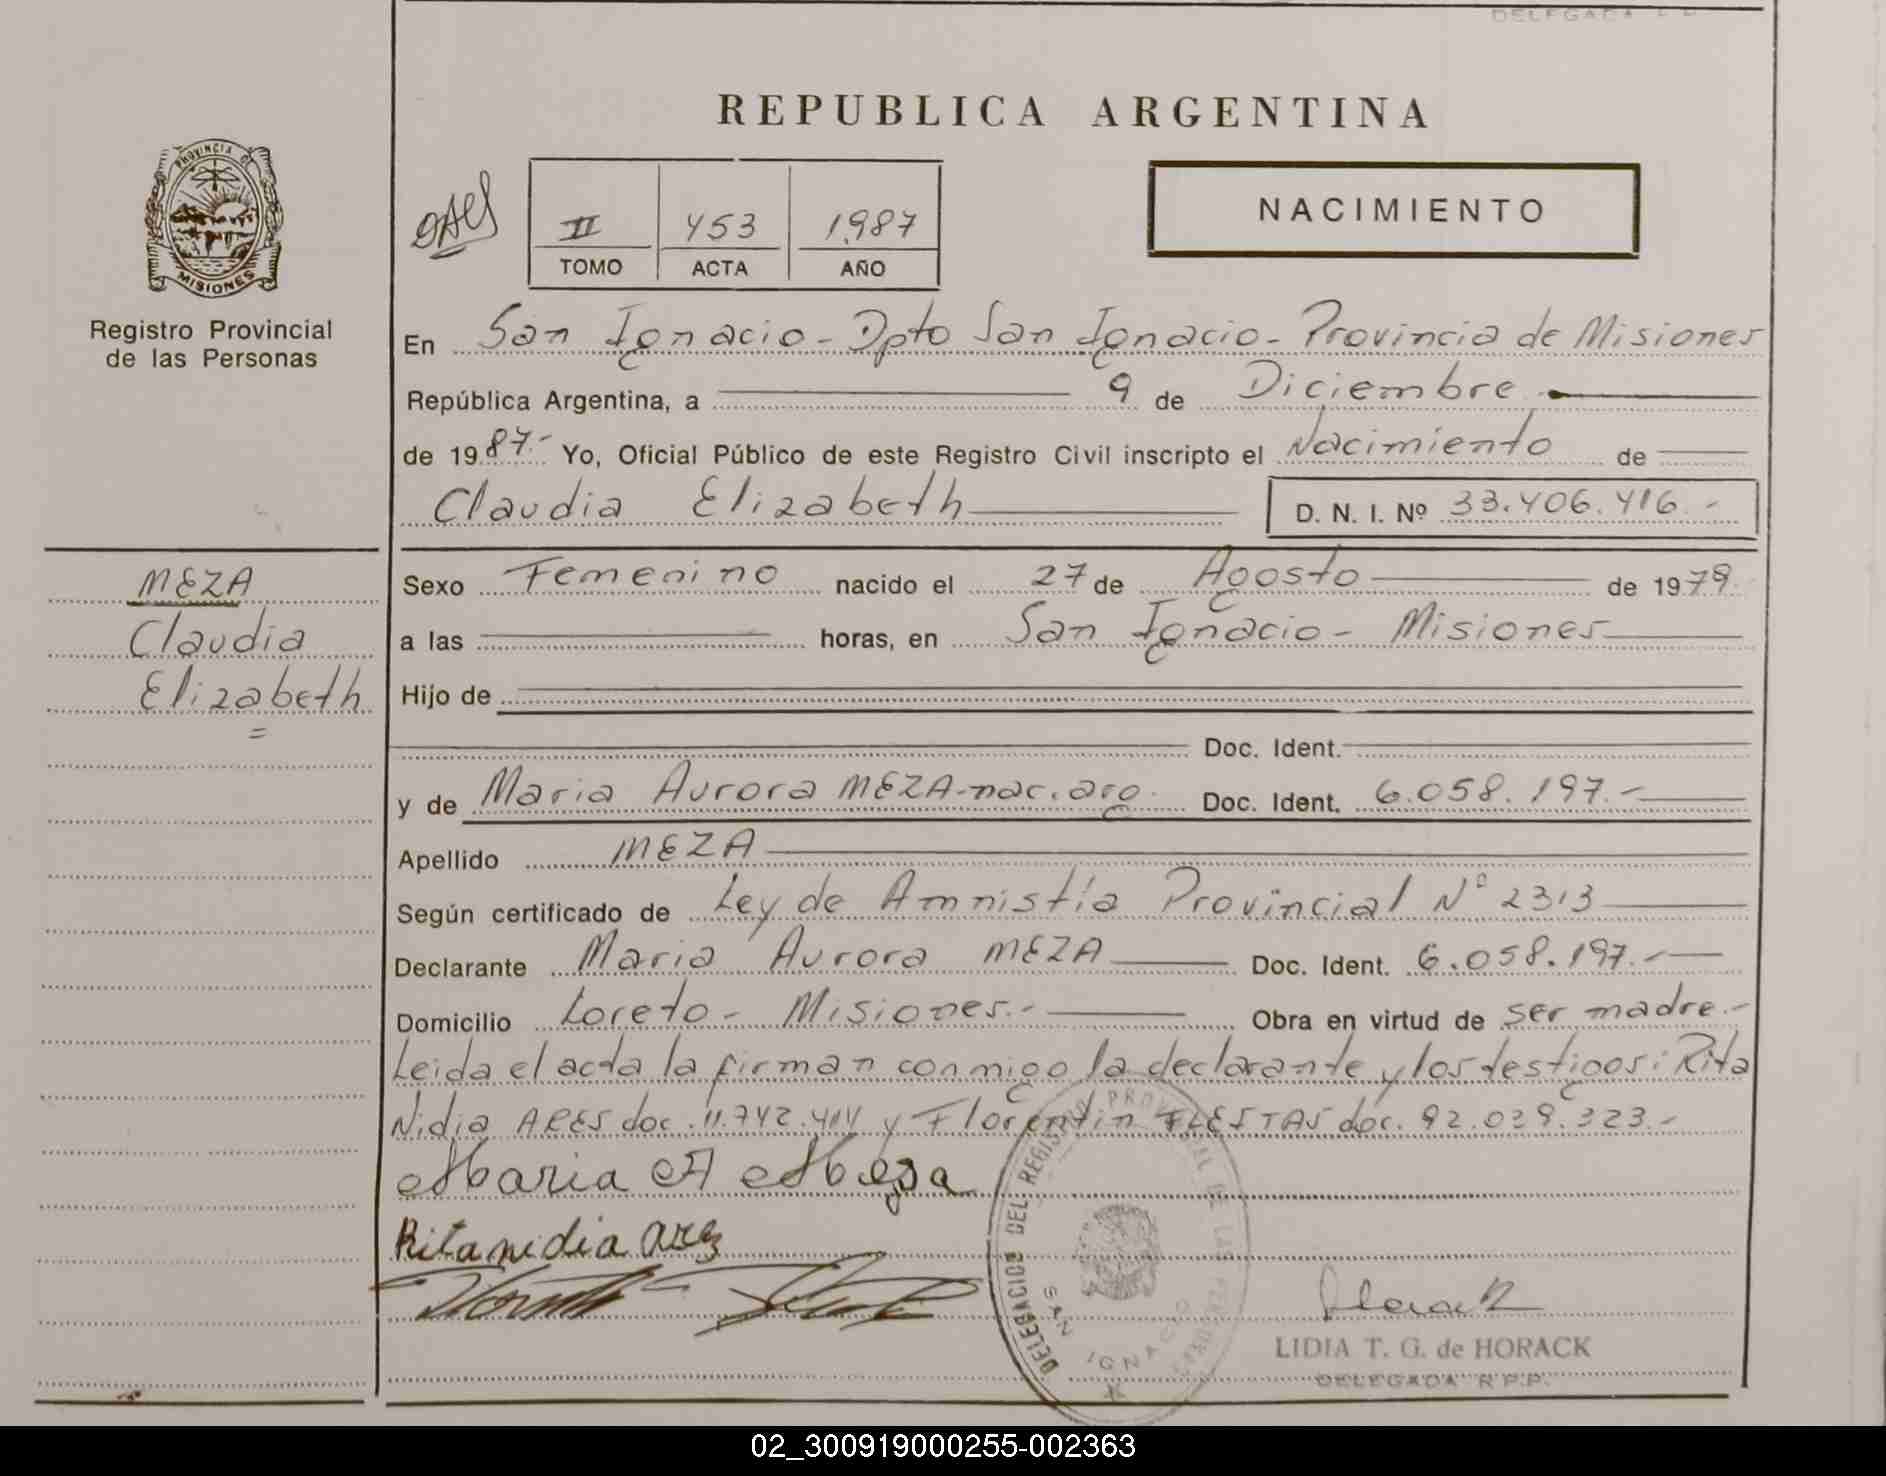 DELEGADA
REPUBLICA ARGENTINA
PROVINCIA DE
MISIONES
Registro Provincial
de las Personas
II 453 1987
TOMO ACTA AÑO
NACIMIENTO
En San Ignacio - Dpto San Ignacio - Provincia de Misiones
República Argentina, a 9 de Diciembre
de 1987.- Yo, Oficial Público de este Registro Civil inscripto el Nacimiento de
Claudia Elizabeth D. N. I. Nº 33.406.416.-
MEZA
Claudia
Elizabeth
=
Sexo Femenino nacido el 27 de Agosto de 1979.
a las horas, en San Ignacio - Misiones
Hijo de
Doc. Ident.
y de Maria Aurora MEZA-nac. arg. Doc. Ident. 6.058.197.-
Apellido MEZA
Según certificado de Ley de Amnistía Provincial N° 2313
Declarante Maria Aurora MEZA Doc. Ident. 6.058.197.-
Domicilio Loreto - Misiones.- Obra en virtud de ser madre.-
Leida el acta la firman conmigo la declarante y los testigos: Rita
Nidia ARES doc. 11.742.414 y Florentin FLEITAS doc. 92.039.323.-
Maria A Mesa
Rita nidia
DELEGACIOS DEL REGISTRO PROVINCIAL DE LAS PERSONAS
SAN IGNACIO
Horack
LIDIA T. G. de HORACK
DELEGADA R.P.P.
02_300919000255-002363